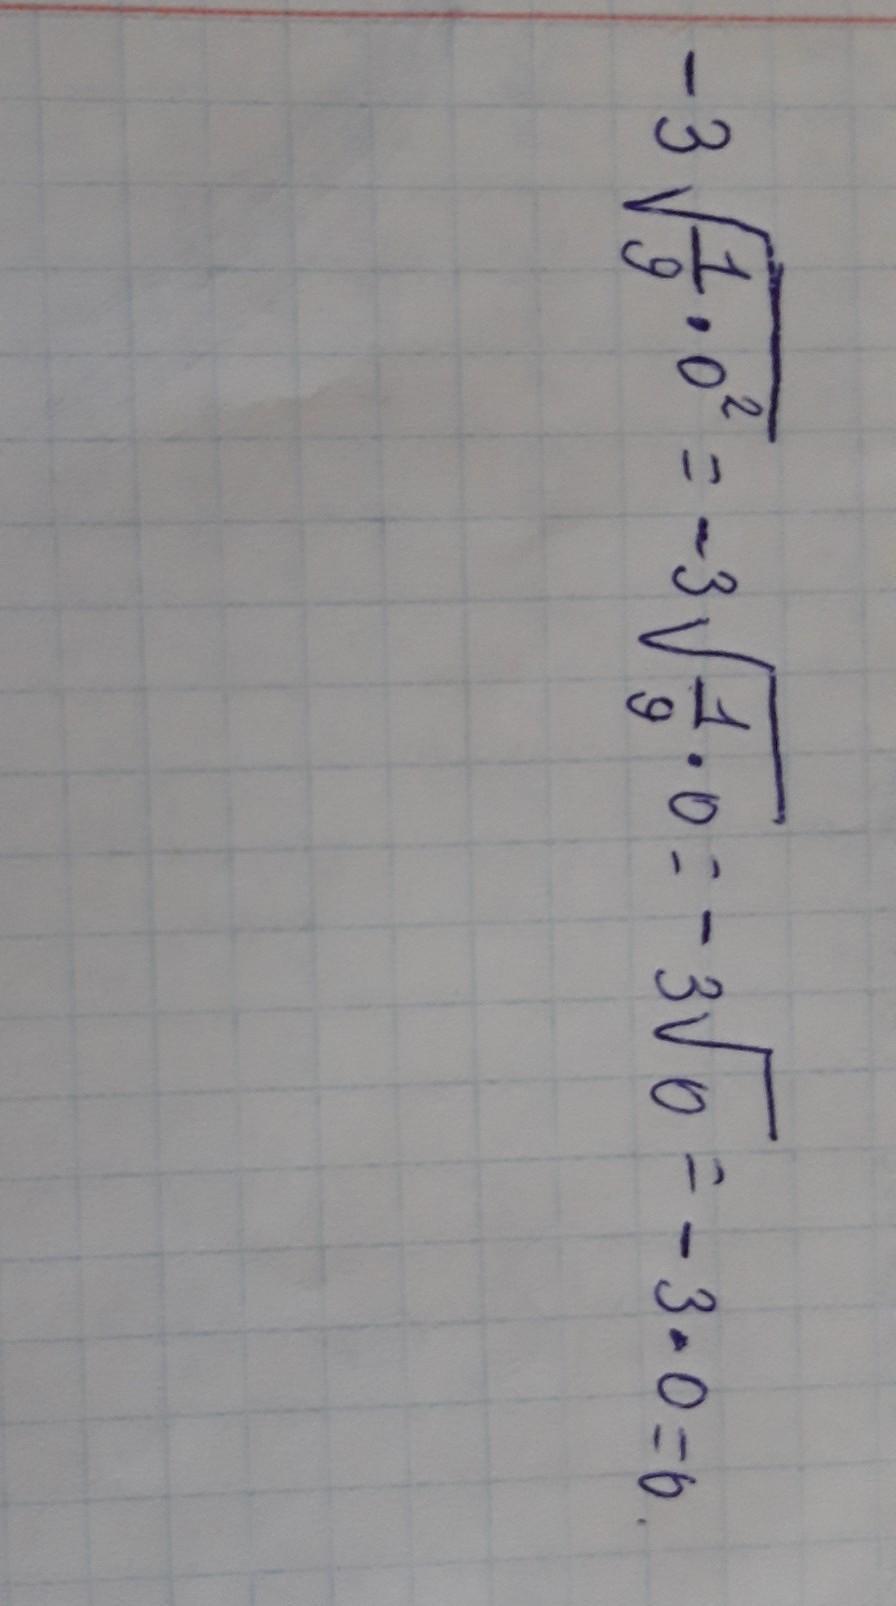 -3√(1/9 · 0²) = -3√(1/9 · 0) = -3√0 = -3 · 0 = 0.